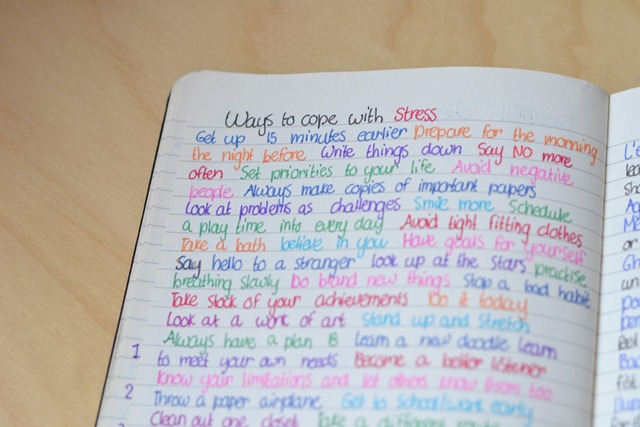 Ways to cope with Stress
Get up 15 minutes earlier Prepare for the morning
the night before Write things down Say NO more
often Set priorities to your life Avoid negative
people Always make copies of important papers
Look at problems as challenges Smile more Schedule
a play time into every day Avoid tight fitting clothes
Take a bath believe in you Have goals for yourself
Say hello to a stranger look up at the stars practise
breathing slowly Do brand new things Stop a bad habit
Take stock of your achievements Do it today
Look at a work of art Stand up and Stretch
Always have a plan B Learn a new doodle Learn
1 to meet your own needs Become a better listener
Know your limitations and let others know them too
2 Throw a paper airplane Get to School/work early
Clean out one closet Take a different route